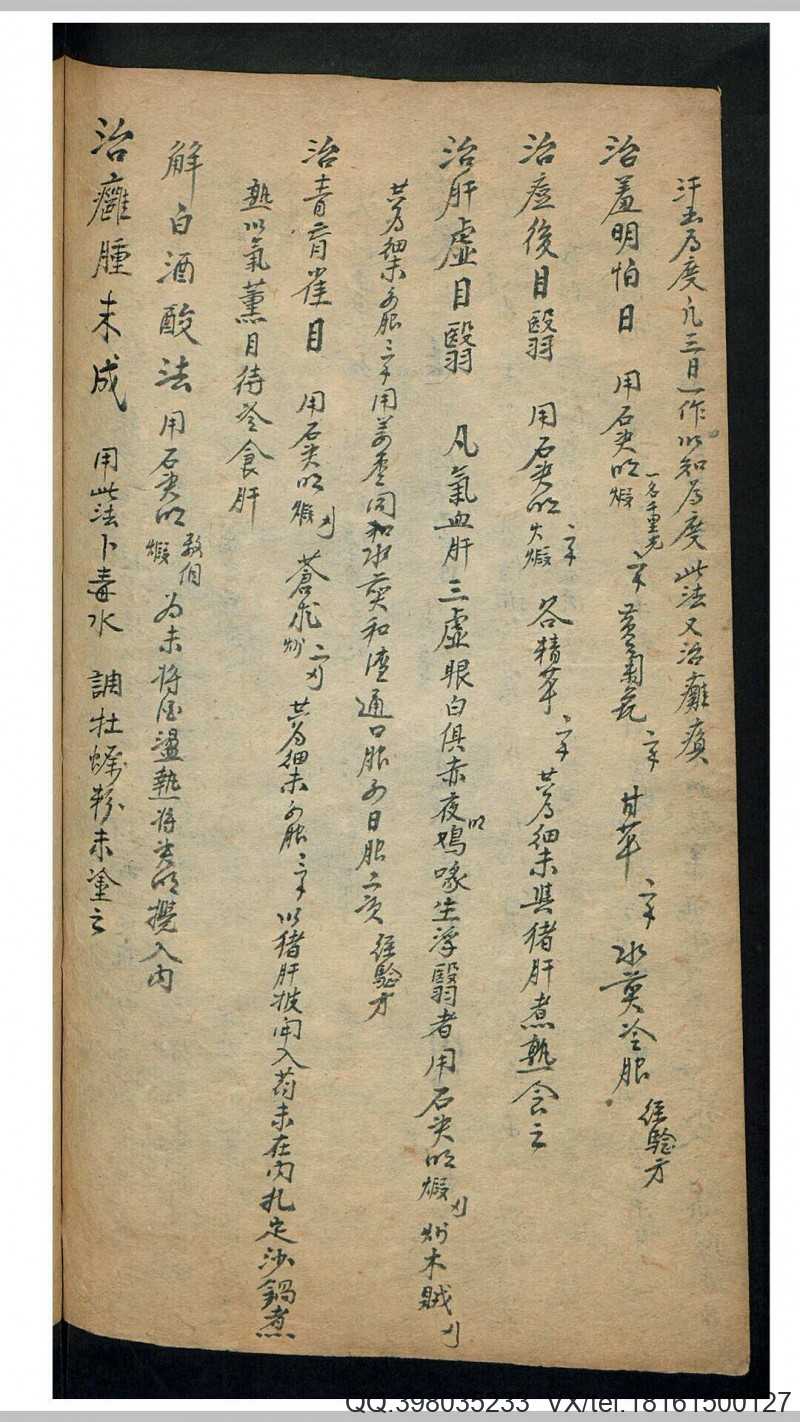 汗出為度凡三日一作以知為度此法又治癱瘓
治羞明怕日 用石决明煅一名千里光 黃菊花 甘草 水煎冷服 經驗方
治痘後目翳 用石决明火煅 谷精草 共為細末與猪肝煮熟食之
治肝虛目翳 凡氣血肝三虛眼白俱赤夜如鸡啄生浮翳者用石决明煅 炒木賊
共為細末每服三錢用姜枣同和水煎和渣通口服每日服二次 經驗方
治青盲雀目 用石决明煅 蒼朮炒 共為細末每服三錢以猪肝披開入药末在內扎定沙鍋煮
熟以氣薰目待冷食肝
解白酒酸法 用石决明數個煅為末將酒盪熱將决明攪入內
治癰腫未成 用此法卜毒水 調牡蠣粉末塗之
QQ.398035233 VX/tel:18161500127